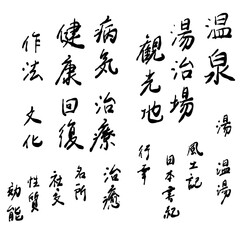 温泉
湯 温湯
湯治場
風土記
観光地
日本書紀
行事
病気 治療
治癒
名所
健康回復
社交
性質
作法 文化
効能